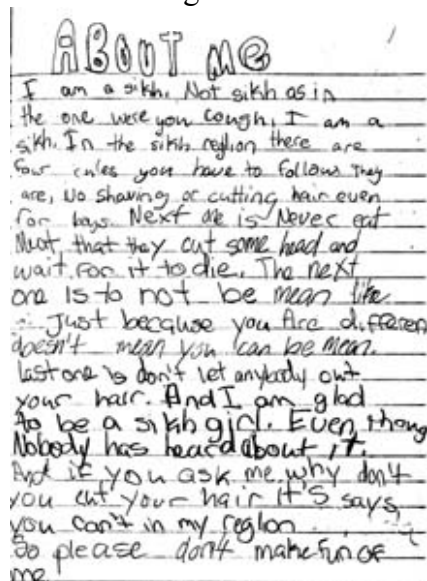 ABOUT ME
I am a sikh. Not sikh as in
the one were you cough. I am a
sikh. In the sikh reglion there are
four rules you have to follow They
are, No shaving or cutting hair even
for boys. Next one is Never eat
Meat that they cut some head and
wait for it to die. The next
one is to not be mean like
Just because you Are differen
doesn't mean you can be mean.
last one is don't let anybody cut
your hair. And I am glad
to be a sikh girl. Even thoug
Nobody has heard about it.
And if you ask me why don't
you cut your hair it's says,
you can't in my reglion
So please don't make fun of
me